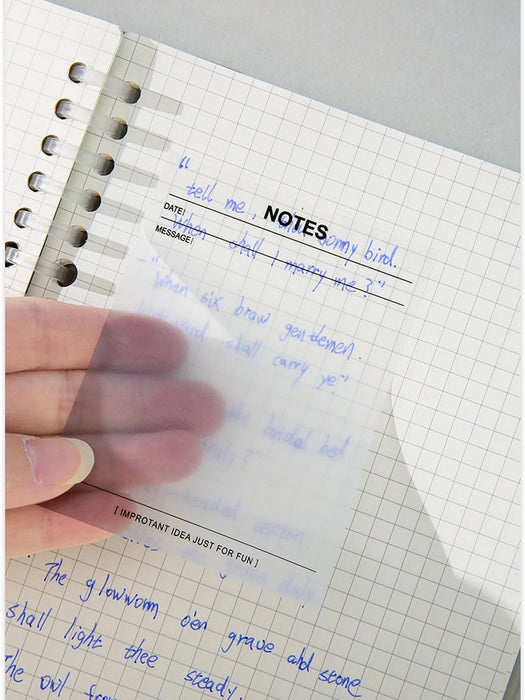 “
tell me, bonny bird.
NOTES
DATE|
When shall I marry me?"
MESSAGE|
"When six braw gentlemen.
shall carry ye"
bridal bed.
truly?"
- headed sexton
grave duly.
[ IMPROTANT IDEA JUST FOR FUN ]
The glowworm o'er grave and stone
shall light thee steady.
The owl from